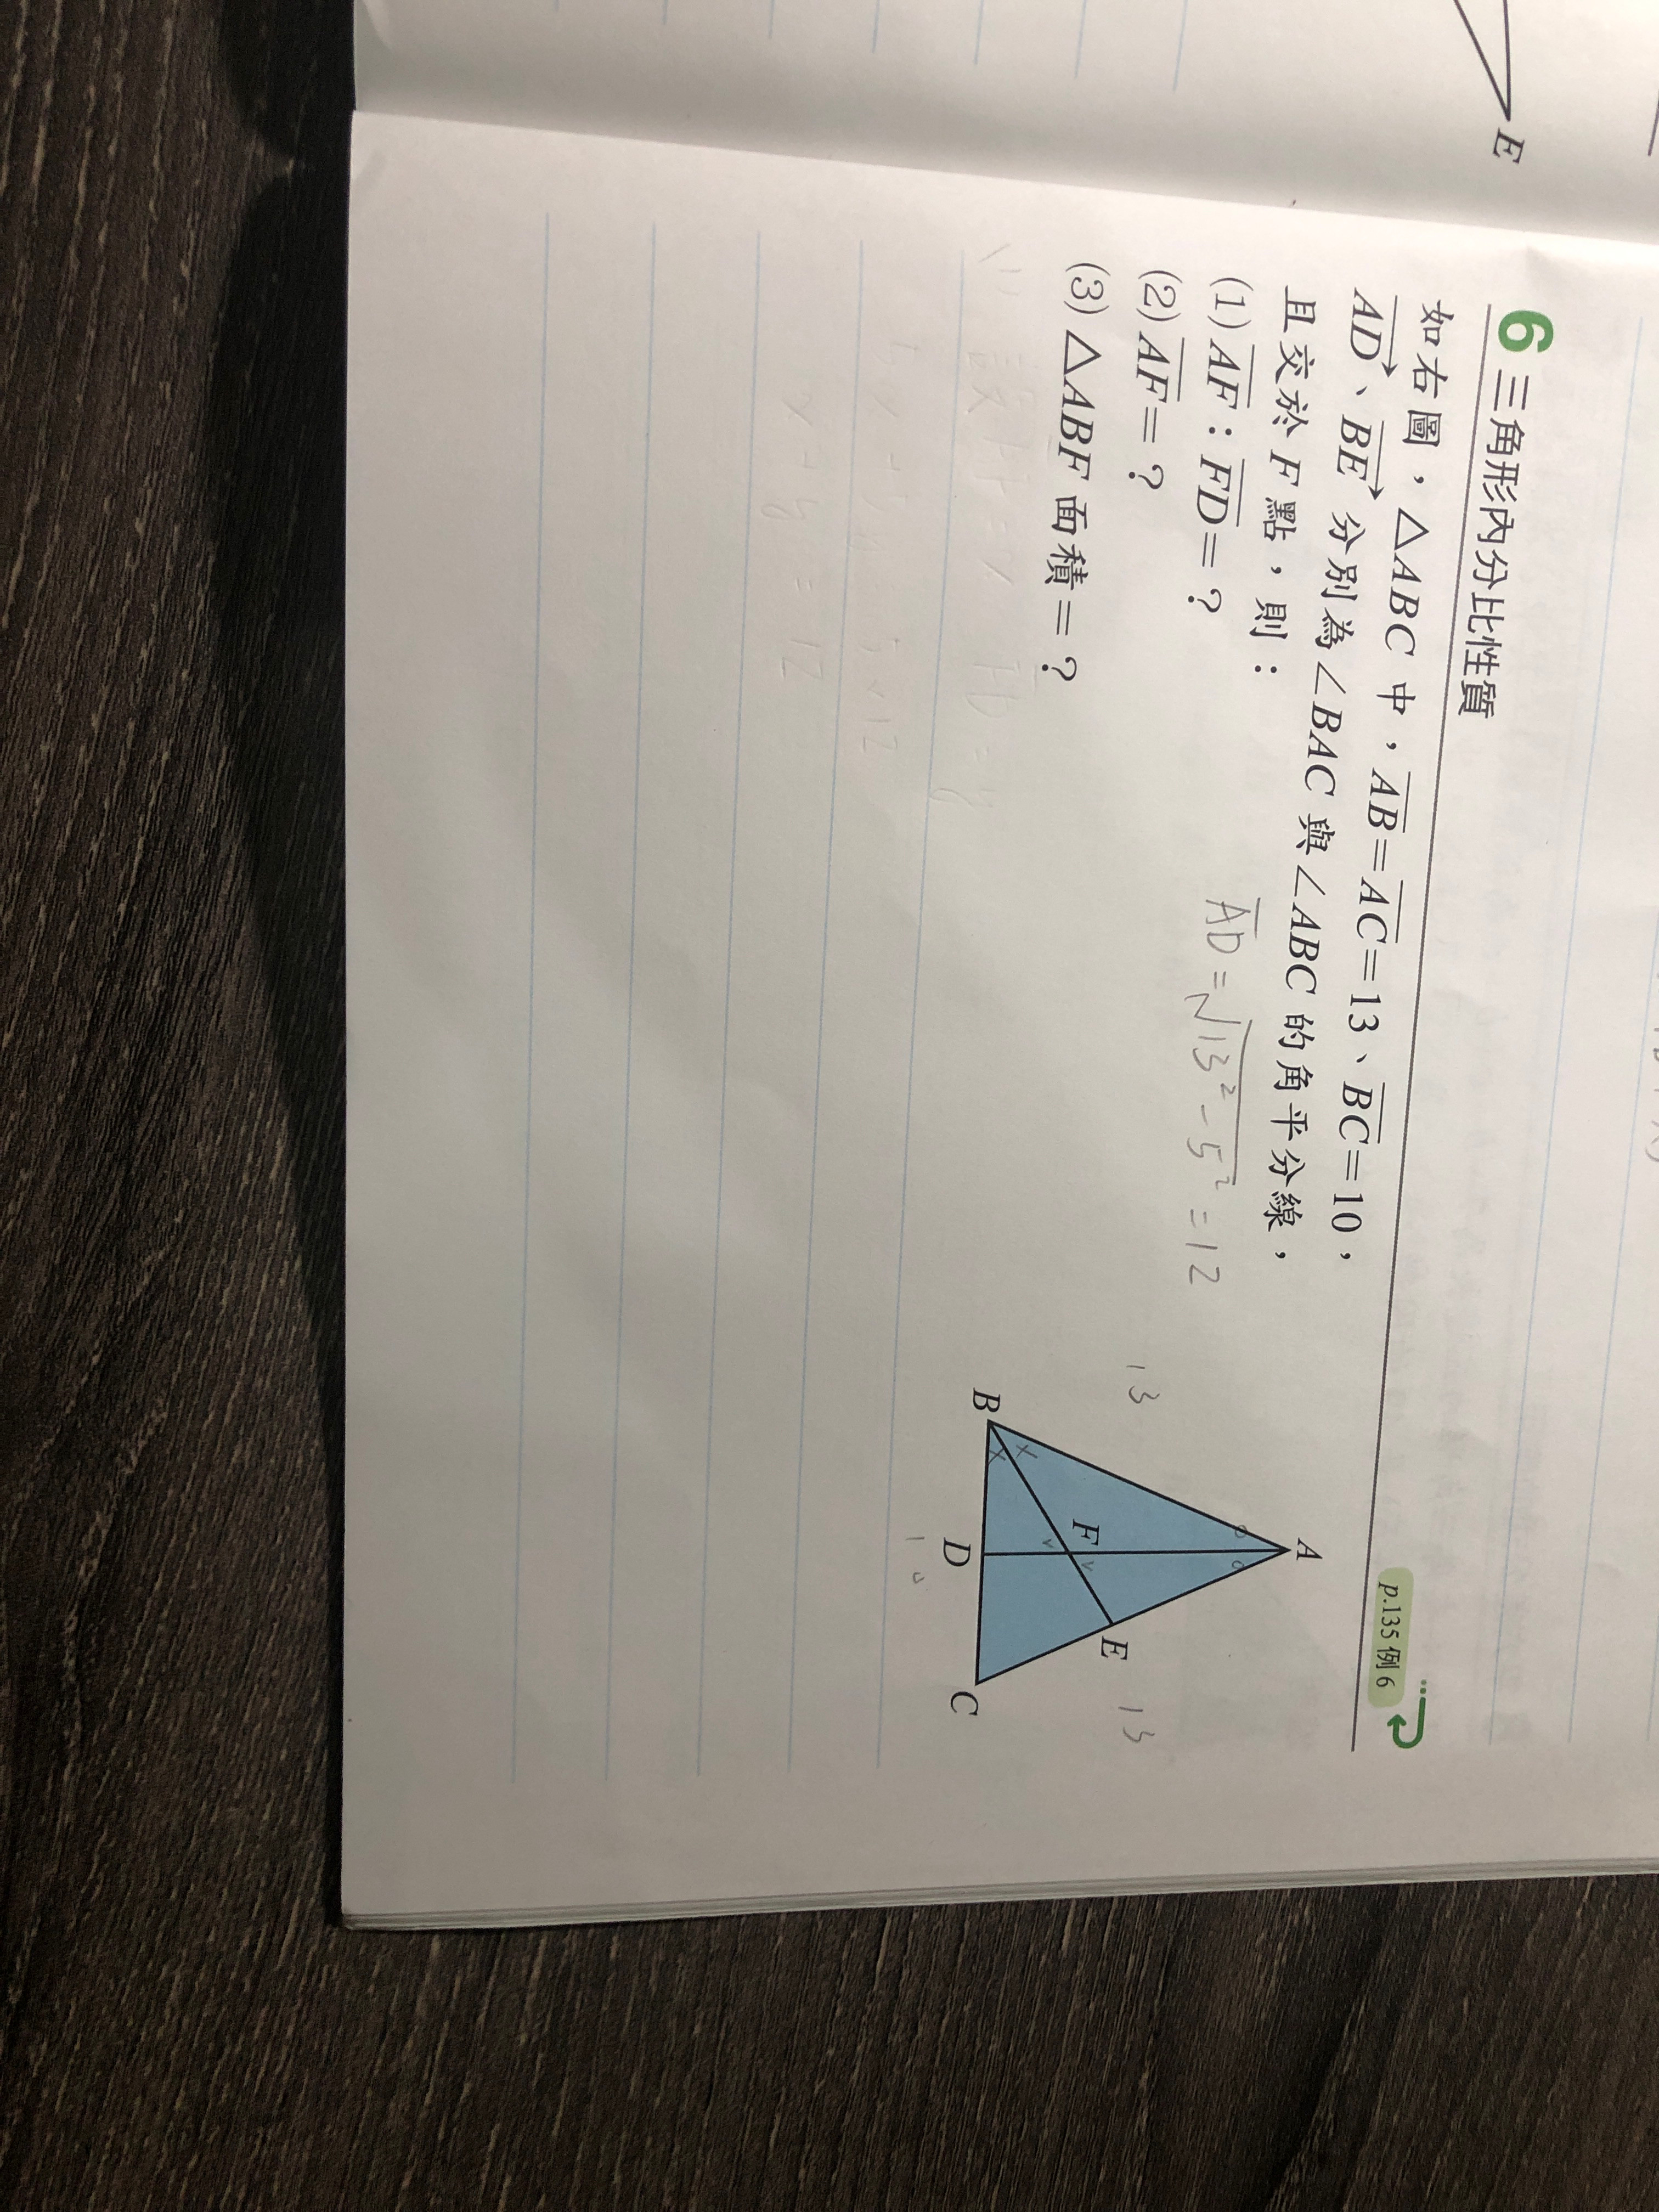 E
6 三角形內分比性質
p.135 例 6
如右圖，△ABC 中，AB=AC=13、BC=10，
AD、BE 分別為∠BAC 與∠ABC 的角平分線，
且交於 F 點，則：
(1) AF：FD=？
(2) AF=？
(3) △ABF 面積=？
AD=√13²-5²=12
A
13
13
F
E
B
D
C
10
x+y=12